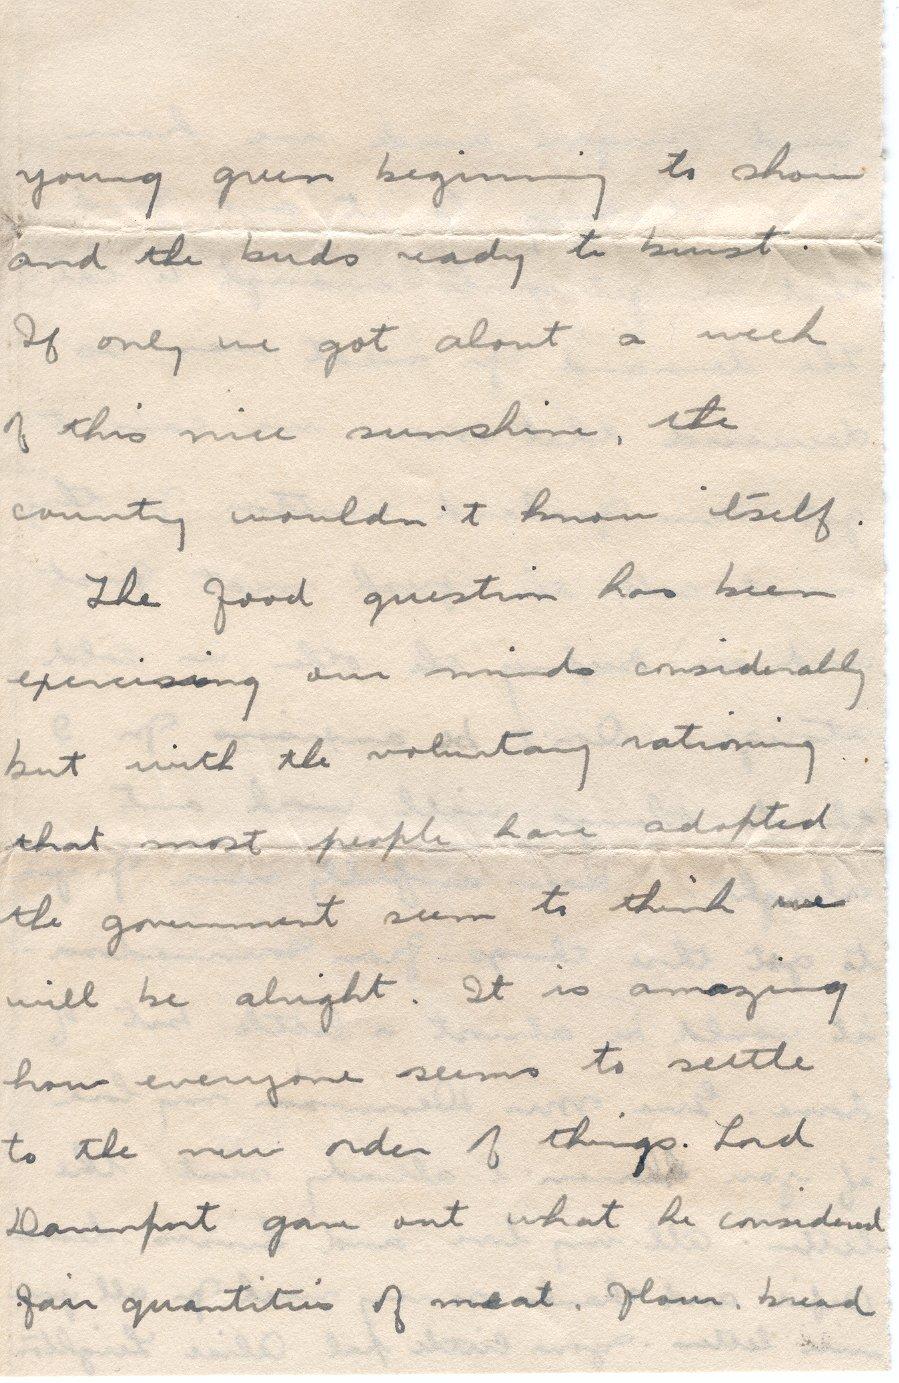 young green beginning to show
and the buds ready to burst.
If only we got about a week
of this nice sunshine, the
country wouldn't know itself.
The food question has been
exercising our minds considerably
but with the voluntary rationing
that most people have adopted
the government seem to think we
will be alright. It is amazing
how everyone seems to settle
to the new order of things. Lord
Davenport gave out what he considered
fair quantities of meat, flour, bread